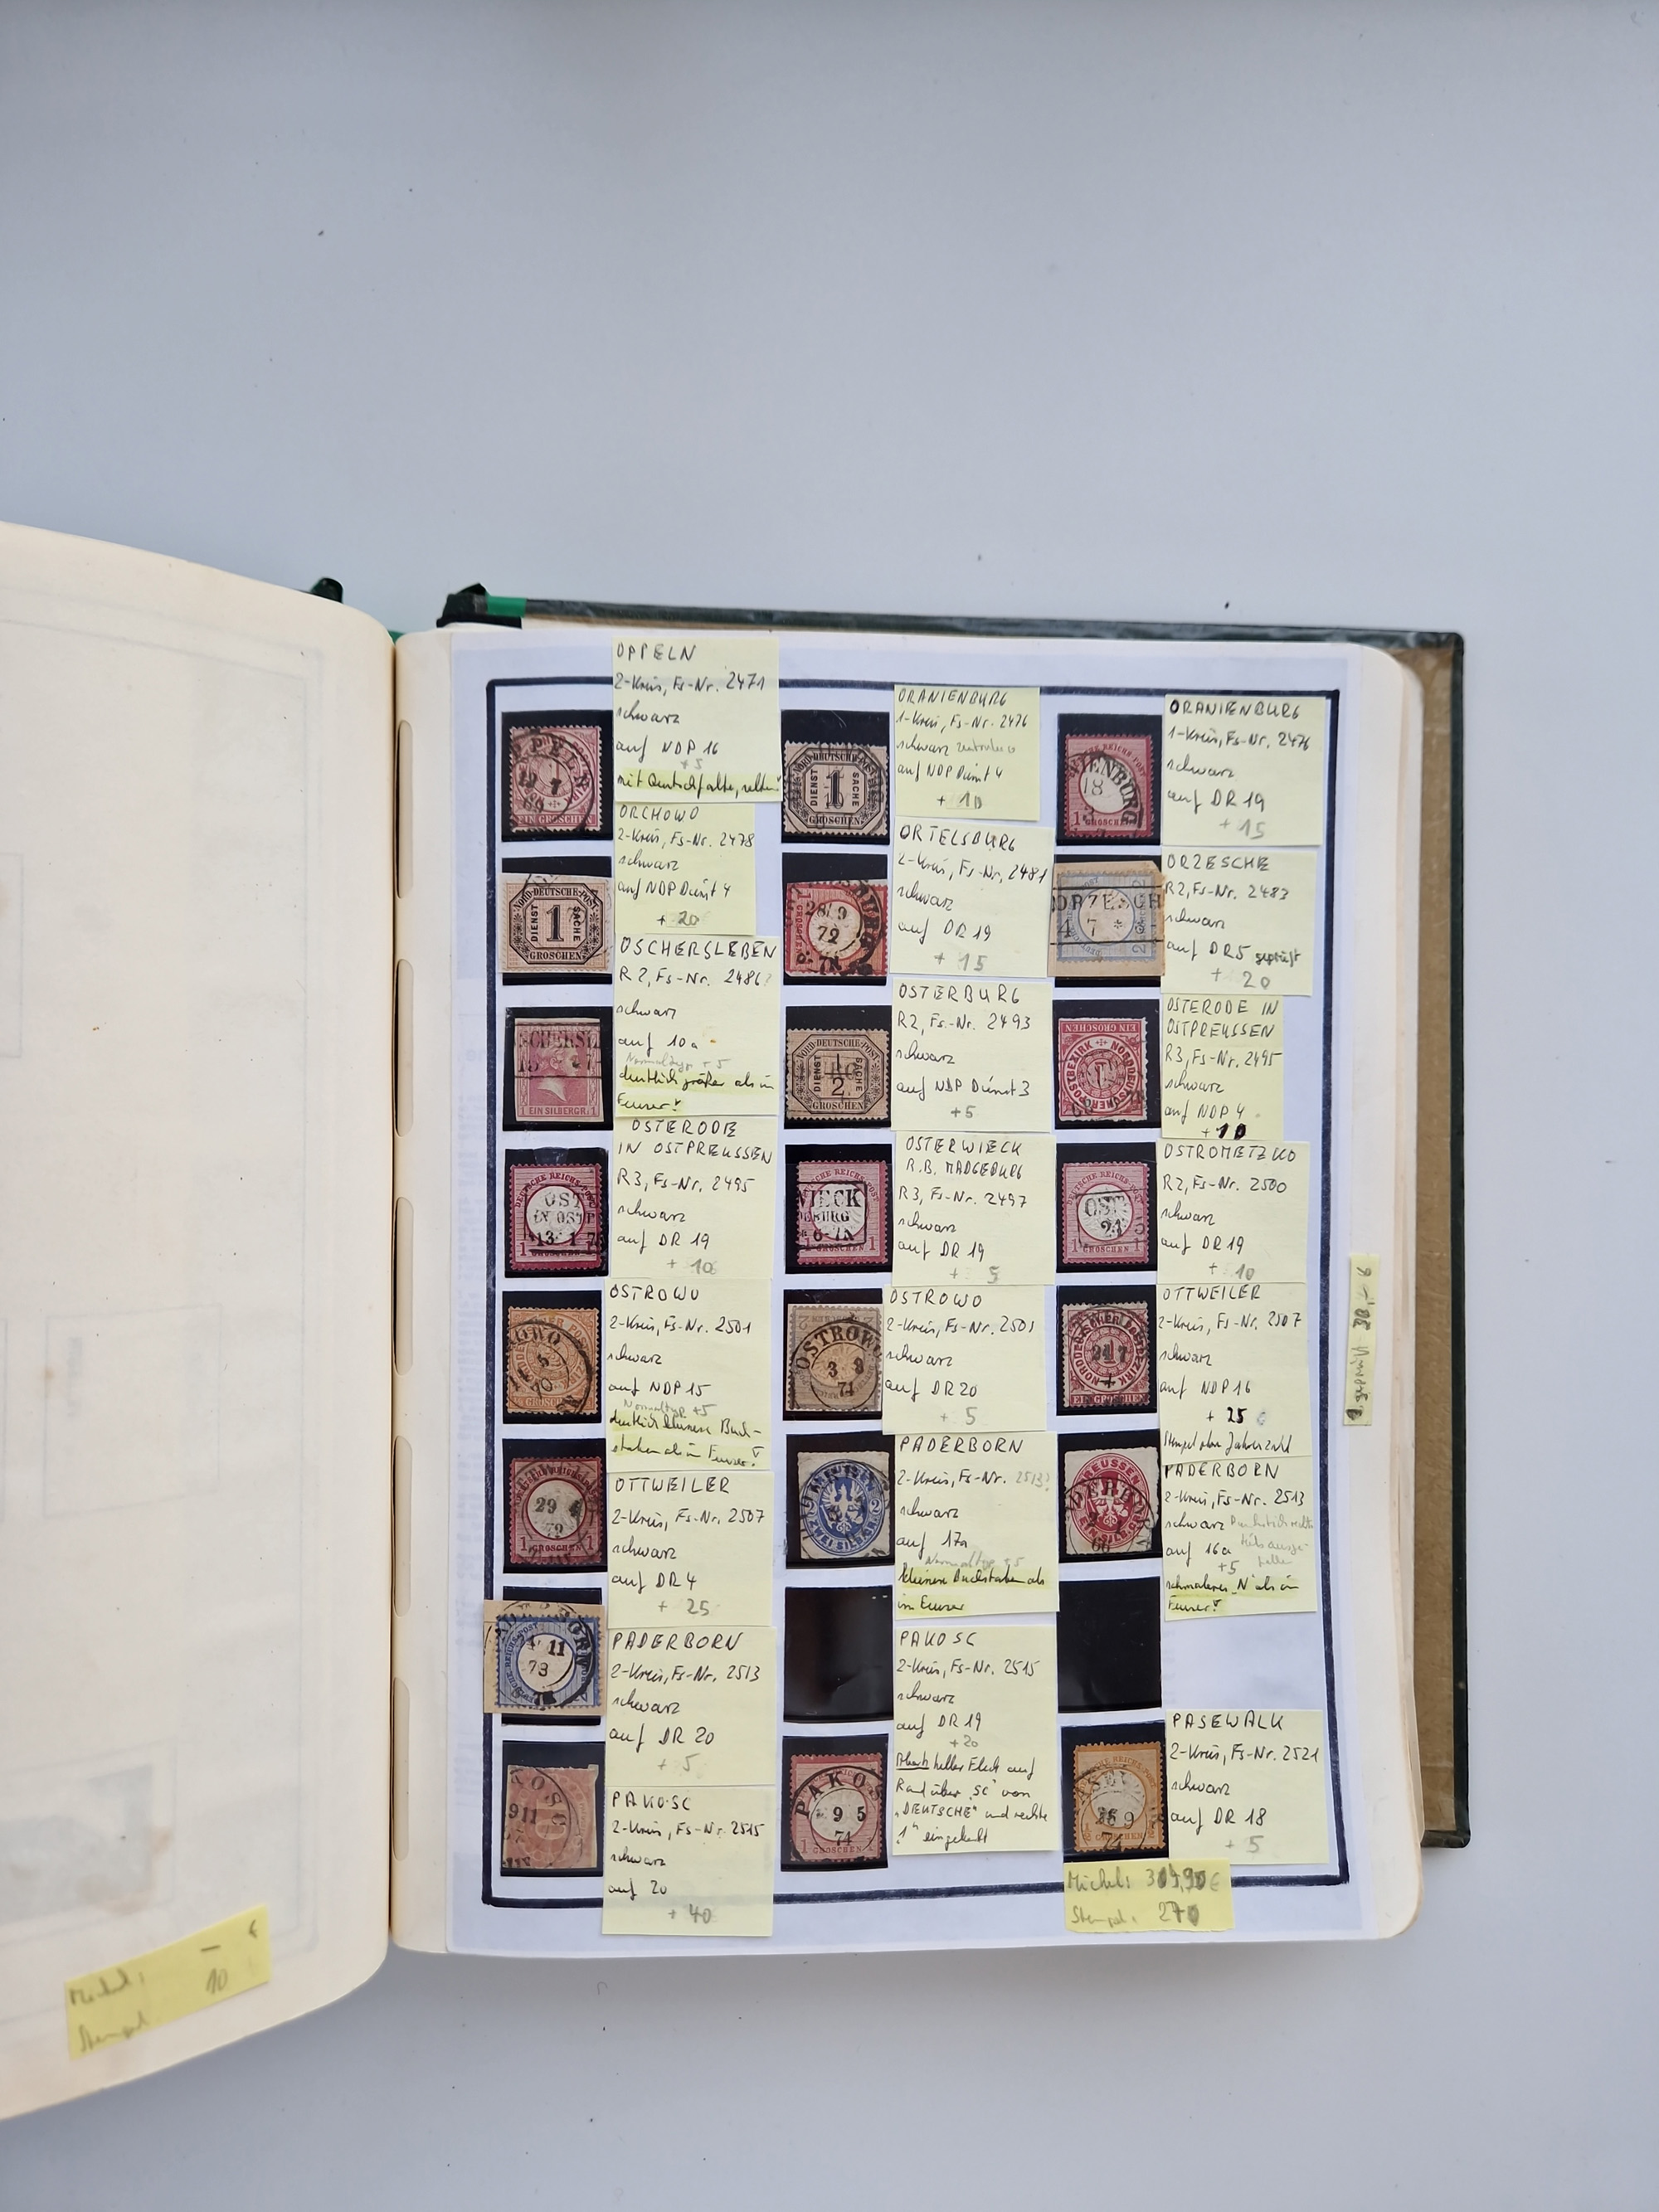 OPPELN
2-Kreis, Fs-Nr. 2471
schwarz
auf NDP 16
+5
mit Quetschfalte, selten!
ORANIENBURG
1-Kreis, Fs-Nr. 2476
schwarz
auf NDP Dienst 4
+ 10
ORANIENBURG
1-Kreis, Fs-Nr. 2476
schwarz
auf DR 19
+ 15
ORCHOWO
2-Kreis, Fs-Nr. 2478
schwarz
auf NDP Dienst 4
+ 20
ORTELSBURG
2-Kreis, Fs-Nr. 2481
schwarz
auf DR 19
+ 15
ORZESCHE
R2, Fs-Nr. 2483
schwarz
auf DR5 geprüft
+ 20
OSCHERSLEBEN
R2, Fs-Nr. 2486?
schwarz
auf 10a
Normaltyp +5
deutlich größer als im
Feuser!
OSTERBURG
R2, Fs-Nr. 2493
schwarz
auf NDP Dienst 3
+5
OSTERODE IN
OSTPREUSSEN
R3, Fs-Nr. 2495
schwarz
auf NDP 4
+ 10
OSTERODE
IN OSTPREUSSEN
R3, Fs-Nr. 2495
schwarz
auf DR 19
+ 10
OSTERWIECK
R.B. MADGEBURG
R3, Fs-Nr. 2497
schwarz
auf DR 19
+ 5
OSTROMETZKO
R2, Fs-Nr. 2500
schwarz
auf DR 19
+ 10
OSTROWO
2-Kreis, Fs-Nr. 2501
schwarz
auf NDP 15
Normaltyp +5
deutlich kleinere Buch-
staben als im Feuser!
OSTROWO
2-Kreis, Fs-Nr. 2501
schwarz
auf DR 20
+ 5
OTTWEILER
2-Kreis, Fs-Nr. 2507
schwarz
auf NDP 16
+ 25
Stempel ohne Jahreszahl
OTTWEILER
2-Kreis, Fs-Nr. 2507
schwarz
auf DR 4
+ 25
PADERBORN
2-Kreis, Fs-Nr. 2513?
schwarz
auf 17a
Normaltyp +5
kleinere Buchstaben als
im Feuser
PADERBORN
2-Kreis, Fs-Nr. 2513
schwarz
auf 16a
+5
schmaleres "N" als im
Feuser!
PADERBORN
2-Kreis, Fs-Nr. 2513
schwarz
auf DR 20
+ 5
PAKOSC
2-Kreis, Fs-Nr. 2515
schwarz
auf 20
+ 40
PAKOSC
2-Kreis, Fs-Nr. 2515
schwarz
auf DR 19
+20
heller Fleck auf
Rand über "SC" von
"DEUTSCHE" und rechte
"1" eingekerbt
PASEWALK
2-Kreis, Fs-Nr. 2521
schwarz
auf DR 18
+ 5
Michel:
Stempel: 270
Michel: –
Stempel: 10
EIN GROSCHEN
NORD-DEUTSCHE-POST
DIENST 1 SACHE
GROSCHEN
28/9
72
EIN SILBERGR.
OST
IN OSTP
13 1
OSTROWO
3 8
74
29
72
11
73
PAKOS
9 5
74